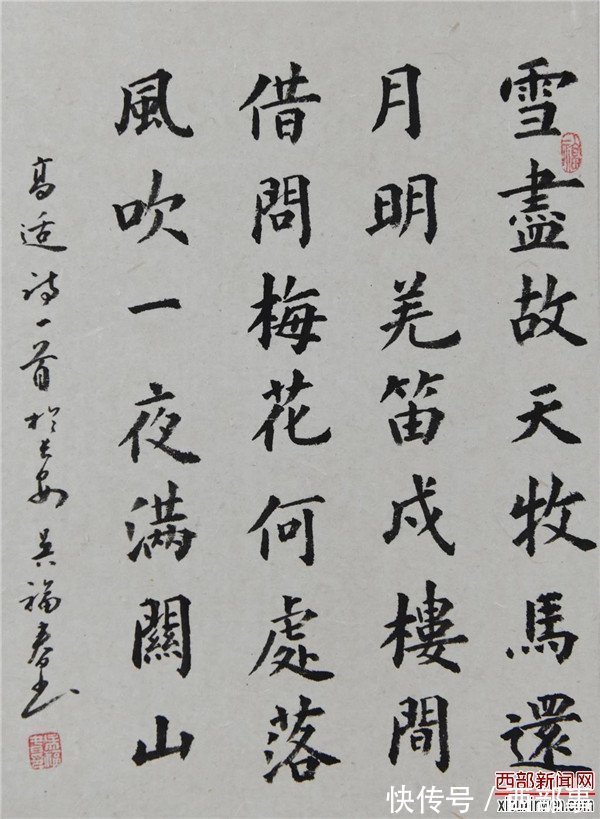 雪盡故天牧馬還
月明羌笛戍樓間
借問梅花何處落
風吹一夜滿關山
高适诗一首於长安 吴福春书
西部新闻网
快传号 / 西部